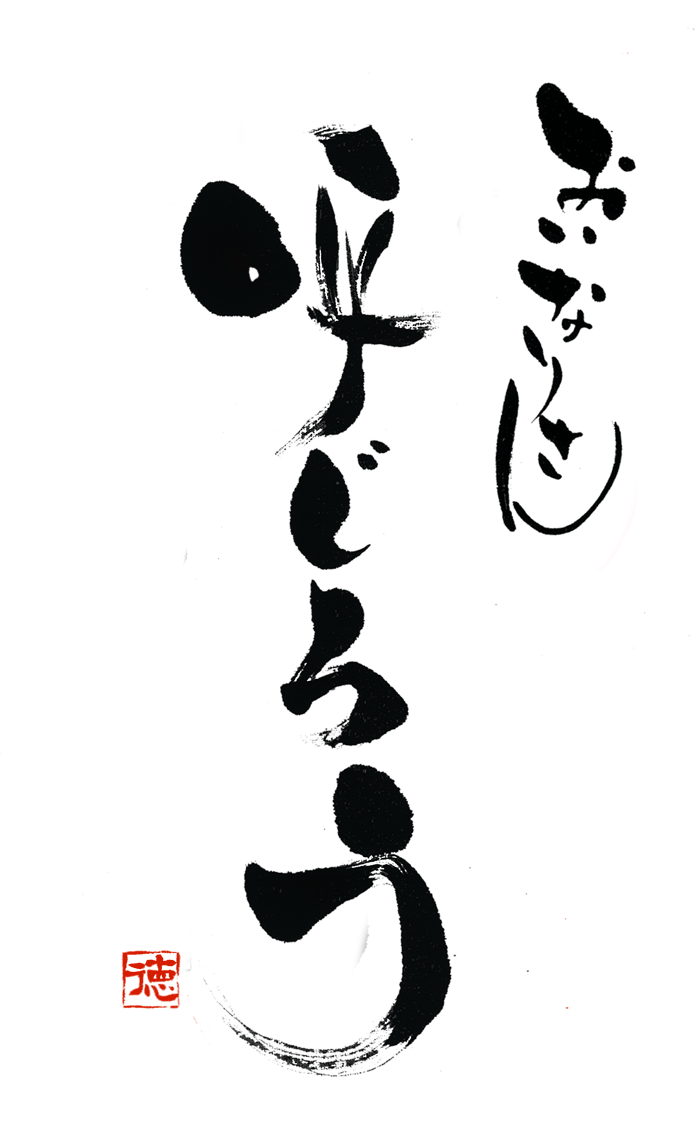 おいなりさん
呼じろう
徳